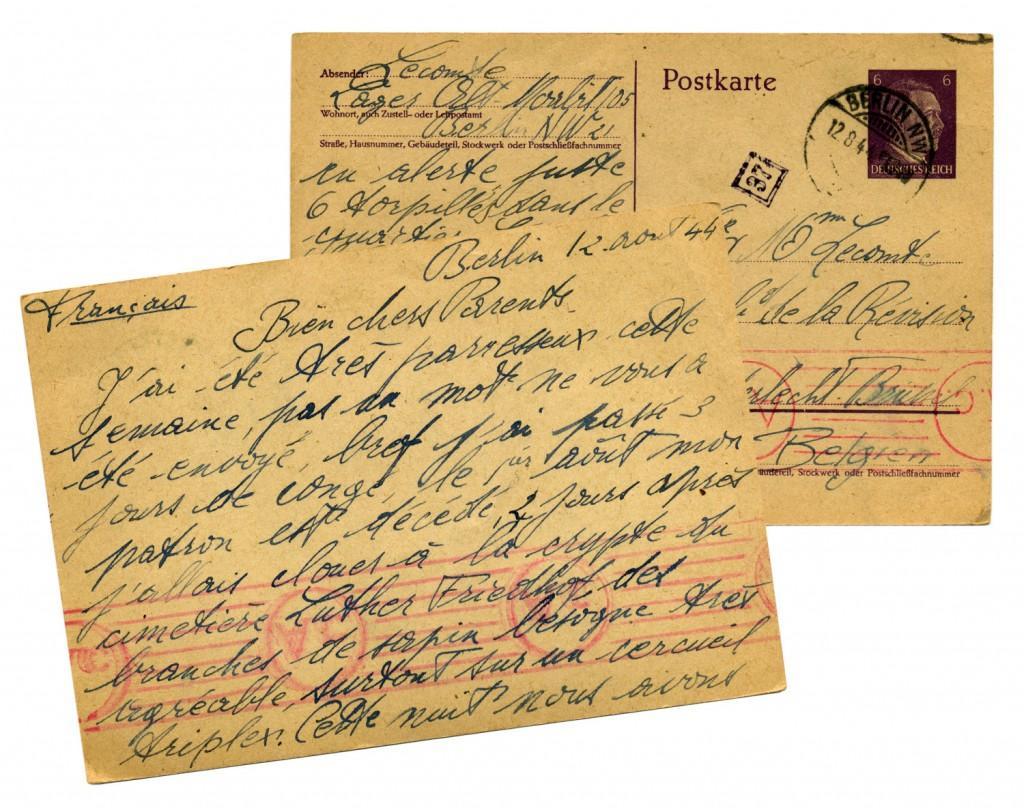 Absender: Lecomte
Lager Alt-Moabit 105
Wohnort, auch Zustell- oder Leitpostamt
Berlin NW 21
Straße, Hausnummer, Gebäudeteil, Stockwerk oder Postschließfachnummer
en alerte juste
6 torpilles dans le
Postkarte
6 6
DEUTSCHES REICH
BERLIN NW
12.8.44
37
Lecomte
de la Révision
Belgien
Stockwerk oder Postschließfachnummer
Français
Berlin 12 aout 44
Bien chers Parents
J'ai été très parresseux cette
semaine, pas un mot ne vous a
été envoyé, bref j'ai passé 3
jours de congé, le 1er août mon
patron est décédé, 2 jours après
j'allais clouer à la crypte du
cimetière Luther Friedhof des
branches de sapin besogne très
agréable, surtout sur un cercueil
triplex. Cette nuit nous avons